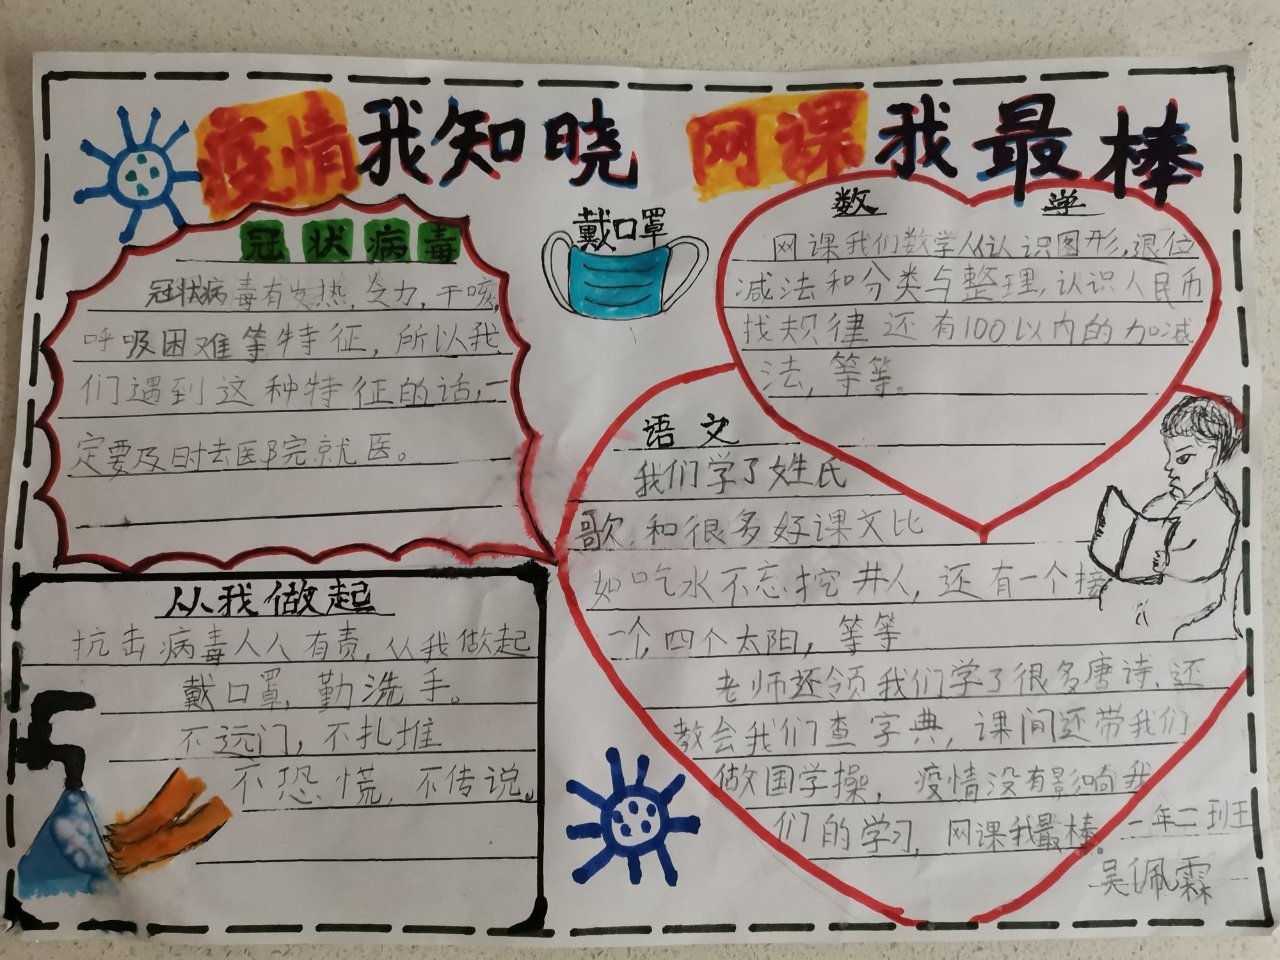 疫情我知晓 网课我最棒
冠状病毒
冠状病毒有发热,乏力,干咳,
呼吸困难等特征,所以我
们遇到这种特征的话,一
定要及时去医院就医。
戴口罩
数 学
网课我们数学从认识图形,退位
减法和分类与整理,认识人民币
找规律还有100以内的加减
法,等等。
语文
我们学了姓氏
歌,和很多好课文比
如吃水不忘挖井人,还有一个接
一个,四个太阳,等等
老师还领我们学了很多唐诗,还
教会我们查字典,课间还带我们
做国学操,疫情没有影响我
们的学习,网课我最棒。
一年二班王
吴佩霖
从我做起
抗击病毒人人有责,从我做起
戴口罩,勤洗手。
不远门,不扎堆
不恐慌,不传说。